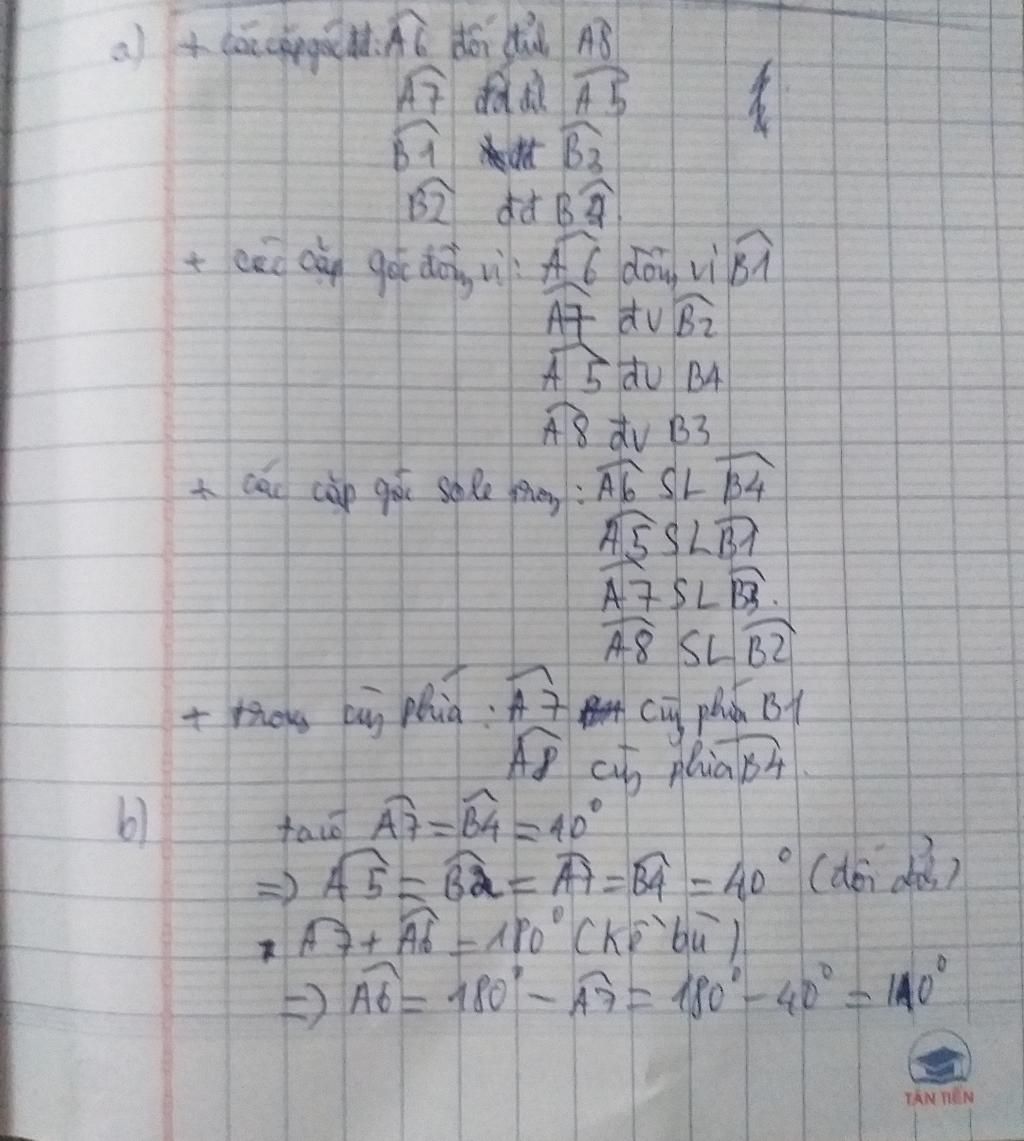 a) + các cặp góc đđ: A6 đối đỉnh A8
A7 đđ A5
B1 đđ B3
B2 đđ B4
+ các cặp góc đồng vị: A6 đồng vị B1
A7 đv B2
A5 đv B4
A8 đv B3
+ các cặp góc sole trong: A6 SL B4
A5 SL B1
A7 SL B3.
A8 SL B2
+ trong cùng phía: A7 cùng phía B1
A8 cùng phía B4.
b) ta có A7 = B4 = 40°
=> A5 = B2 = A7 = B4 = 40° (đối đỉnh)
A7 + A6 = 180° (Kề bù)
=> A6 = 180° - A7 = 180° - 40° = 140°
TÂN TIẾN